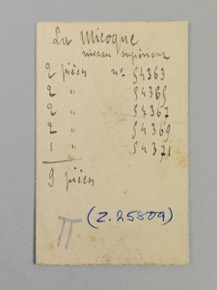 La Micoque
niveau supérieur
2 pièces n° 54363
2 " 54365
2 " 54367
2 " 54369
1 " 54371
9 pièces
(Z.25809)
π